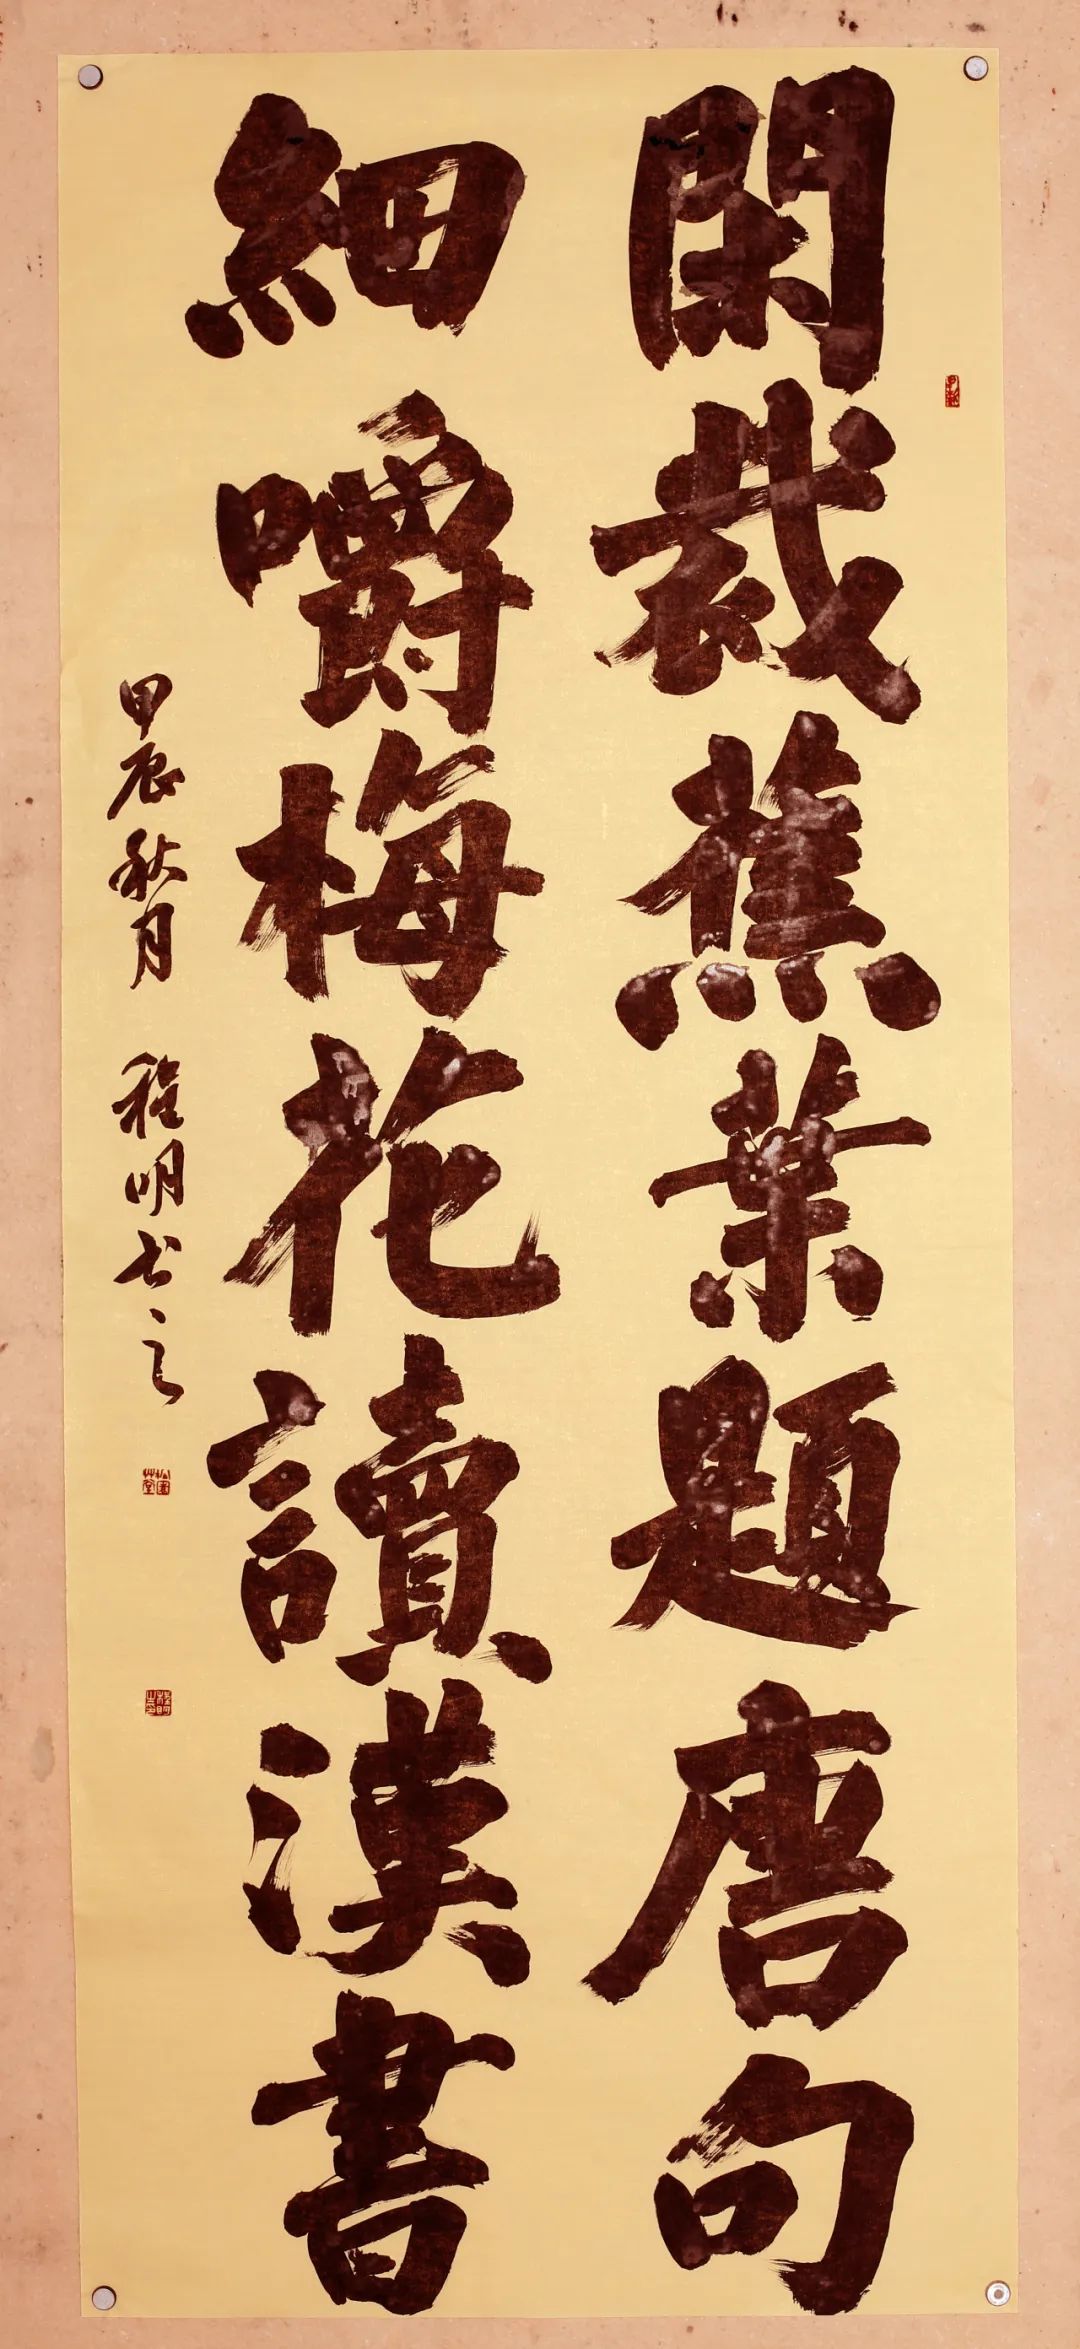 閑裁蕉葉題唐句
細嚼梅花讀漢書
甲辰秋月 程明书之